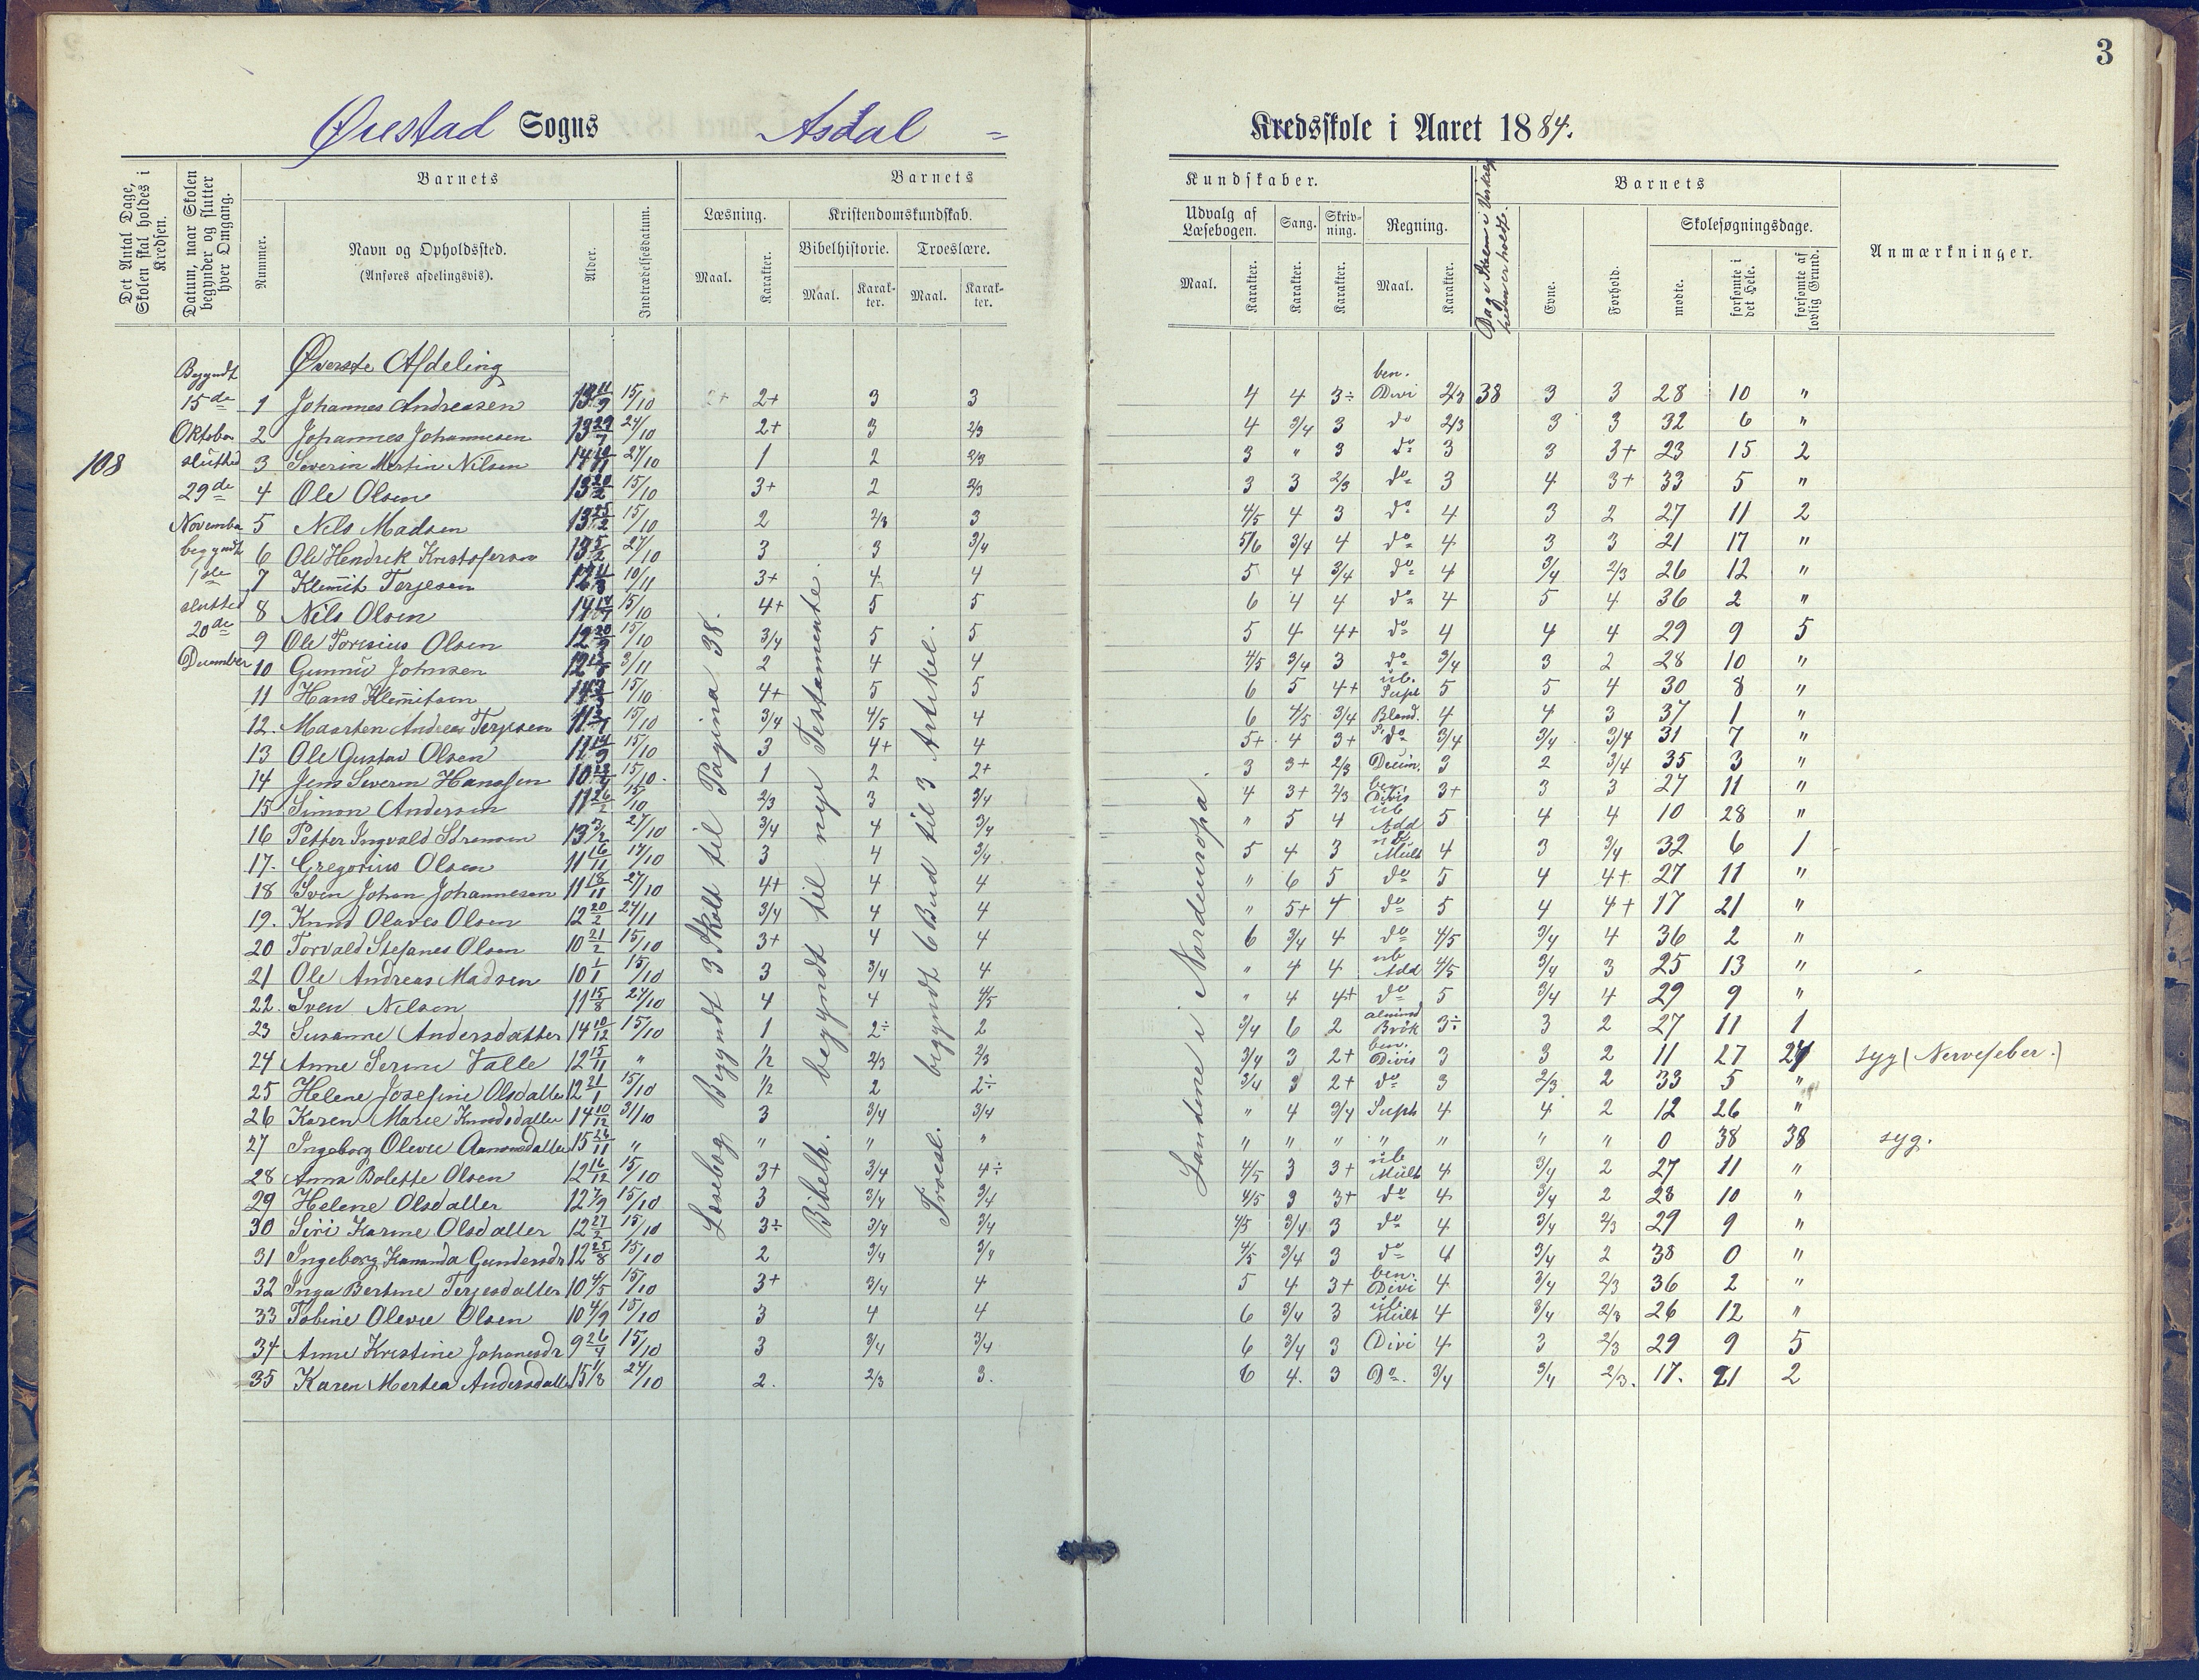 3
Øiestad Sogns Asdal = Kredsskole i Aaret 1884.
Det Antal Dage, Skolen skal holdes i Kredsen.
Datum, naar Skolen begynder og slutter hver Omgang.
Barnets
Nummer.
Navn og Opholdssted.
(Anføres afdelingsvis).
Alder.
Indtrædelsesdatum.
Barnets
Læsning.
Maal.
Karakter.
Kristendomskundskab.
Bibelhistorie.
Maal.
Karak-ter.
Troeslære.
Maal.
Karak-ter.
Kundskaber.
Udvalg af Læsebogen.
Maal.
Karakter.
Sang.
Karakter.
Skriv-ning.
Karakter.
Regning.
Maal.
Karakter.
Barnets
Evne.
Forhold.
Skolesøgningsdage.
mødte.
forsømte i det Hele.
forsømte af lovlig Grund.
Anmærkninger.
108
Begyndt
15de
Oktober
slutted
29de
November
begyndt
1ste
slutted
20de
December
Øverste Afdeling
Læsebog Begyndt 3 Skolt til Pagina 38.
Bibelh. begyndt til nye Testamente.
Troesl. begyndt 6 Bud til 3 Artikel.
Landene i Nordeuropa.
1 Johannes Andreasen 13 11/9 15/10 2+ 3 3 4 4 3÷ ben. Divi 2/3 38 3 3 28 10 "
2 Johannes Johannesen 13 29/7 24/10 2+ 3 2/3 4 3/4 3 do 2/3 3 3 32 6 "
3 Severin Martin Nilsen 27/10 1 2 2/3 3 " 3 do 3 3 3+ 23 15 2
4 Ole Olsen 15/10 3+ 2 2/3 3 3 2/3 do 3 4 3+ 33 5 "
5 Nils Madsen 15/10 2 2/3 3 4/5 4 3 do 4 3 2 27 11 2
6 Ole Hendrik Kristofersen 27/10 3 3 3/4 5/6 3/4 4 do 4 3 3 21 17 "
7 Klemit Terjesen 10/11 3+ 4 4 5 4 3/4 do 4 3/4 2/3 26 12 "
8 Nils Olsen 15/10 4+ 5 5 6 4 4 do 4 5 4 36 2 "
9 Ole Toresius Olsen 15/10 3/4 5 5 5 4 4+ do 4 4 4 29 9 5
10 Gunnu Johnsen 3/11 2 4 4 4/5 3/4 3 do 3/4 3 2 28 10 "
11 Hans Klemitsen 15/10 4+ 5 5 6 5 4+ ub. Supt 5 5 4 30 8 "
12. Maarten Andreas Terjesen 15/10 3/4 4/5 4 6 4/5 3/4 Bland. 4 4 3 37 1 "
13 Ole Gustav Olsen 15/10 3 4+ 4 5+ 4 3+ do 3/4 3/4 3/4 31 7 "
14 Jens Severin Hanssen 15/10. 1 2 2+ 3 3+ 2/3 Decim. 3 2 3/4 35 3 "
15 Simon Andersen 11 26/2 15/10 2/3 3 3/4 4 3+ 2/3 ben. Divis 3+ 3 3 27 11 "
16 Petter Ingvald Sørensen 13 3/2 27/10 3/4 4 3/4 " 5 4 ub Add 5 4 4 10 28 "
17. Gregorius Olsen 11 16/11 14/10 3 4 3/4 5 4 3 ub Mult 4 3 3/4 32 6 1
18 Sven Johan Johannesen 11 18/11 27/10 4+ 4 4 " 6 5 do 5 4 4+ 27 11 "
19. Knud Olaves Olsen 12 20/2 24/11 3/4 4 4 " 5+ 4 do 5 4 4+ 17 21 "
20 Torvald Stefanes Olsen 10 21/2 15/10 3+ 4 4 6 3/4 4 do 4/5 3/4 4 36 2 "
21 Ole Andreas Madsen 10 1/1 15/10 3 3/4 4 " 4 4 ub Add 4/5 3/4 3 25 13 "
22. Sven Nilsen 11 15/8 24/10 4 4 4/5 " 4 4+ do 5 3/4 4 29 9 "
23 Susanne Andersdatter 14 10/12 15/10 1 2÷ 2 3/4 6 2 almind Brök 3÷ 3 2 27 11 1
24 Anne Serine Valle 12 15/11 " 1/2 2/3 2/3 3/4 3 2+ ben. Divis 3 3 2 11 27 27 syg (Nervefeber.)
25 Helene Josefine Olsdatter 12 21/1 15/10 1/2 2 2÷ 3/4 3 2+ do 3 2/3 2 33 5 "
26 Karen Marie Knudsdatter 14 10/12 31/10 3 3/4 3/4 " 4 3/4 Supt 4 4 2 12 26 "
27 Ingeborg Olevie Aamundsdatter 15 26/11 " " " " " " " " " " " 0 38 38 syg.
28 Anna Bolette Olsen 12 16/12 15/10 3+ 3/4 4÷ 4/5 3 3+ ub Mult 4 3/4 2 27 11 "
29 Helene Olsdatter 12 7/9 15/10 3 3/4 3/4 4/5 3 3+ do 4 3/4 2 28 10 "
30 Siri Karine Olsdatter 12 27/2 15/10 3÷ 3/4 3/4 4/5 3/4 3 do 4 3/4 2/3 29 9 "
31 Ingeborg Kananda Gundersdr 12 25/8 15/10 2 3/4 3/4 4/5 3/4 3 do 4 3/4 2 38 0 "
32 Inga Bertine Terjesdatter 10 4/5 15/10 3+ 3/4 4 5 4 3+ ben. Divi 4 3/4 2/3 36 2 "
33 Tobine Olevie Olsen 10 4/9 15/10 3 4 4 6 3/4 3 ub. Mult 4 3/4 2/3 26 12 "
34 Anne Kristine Johanesdr 9 26/4 15/10 3 3/4 3/4 6 3/4 3 Divi 4 3 2/3 29 9 5
35 Karen Mertea Andersdatter 15 1/8 24/10 2. 2/3 3. 6 4. 3 Do. 3/4 3/4 2/3. 17. 21 2